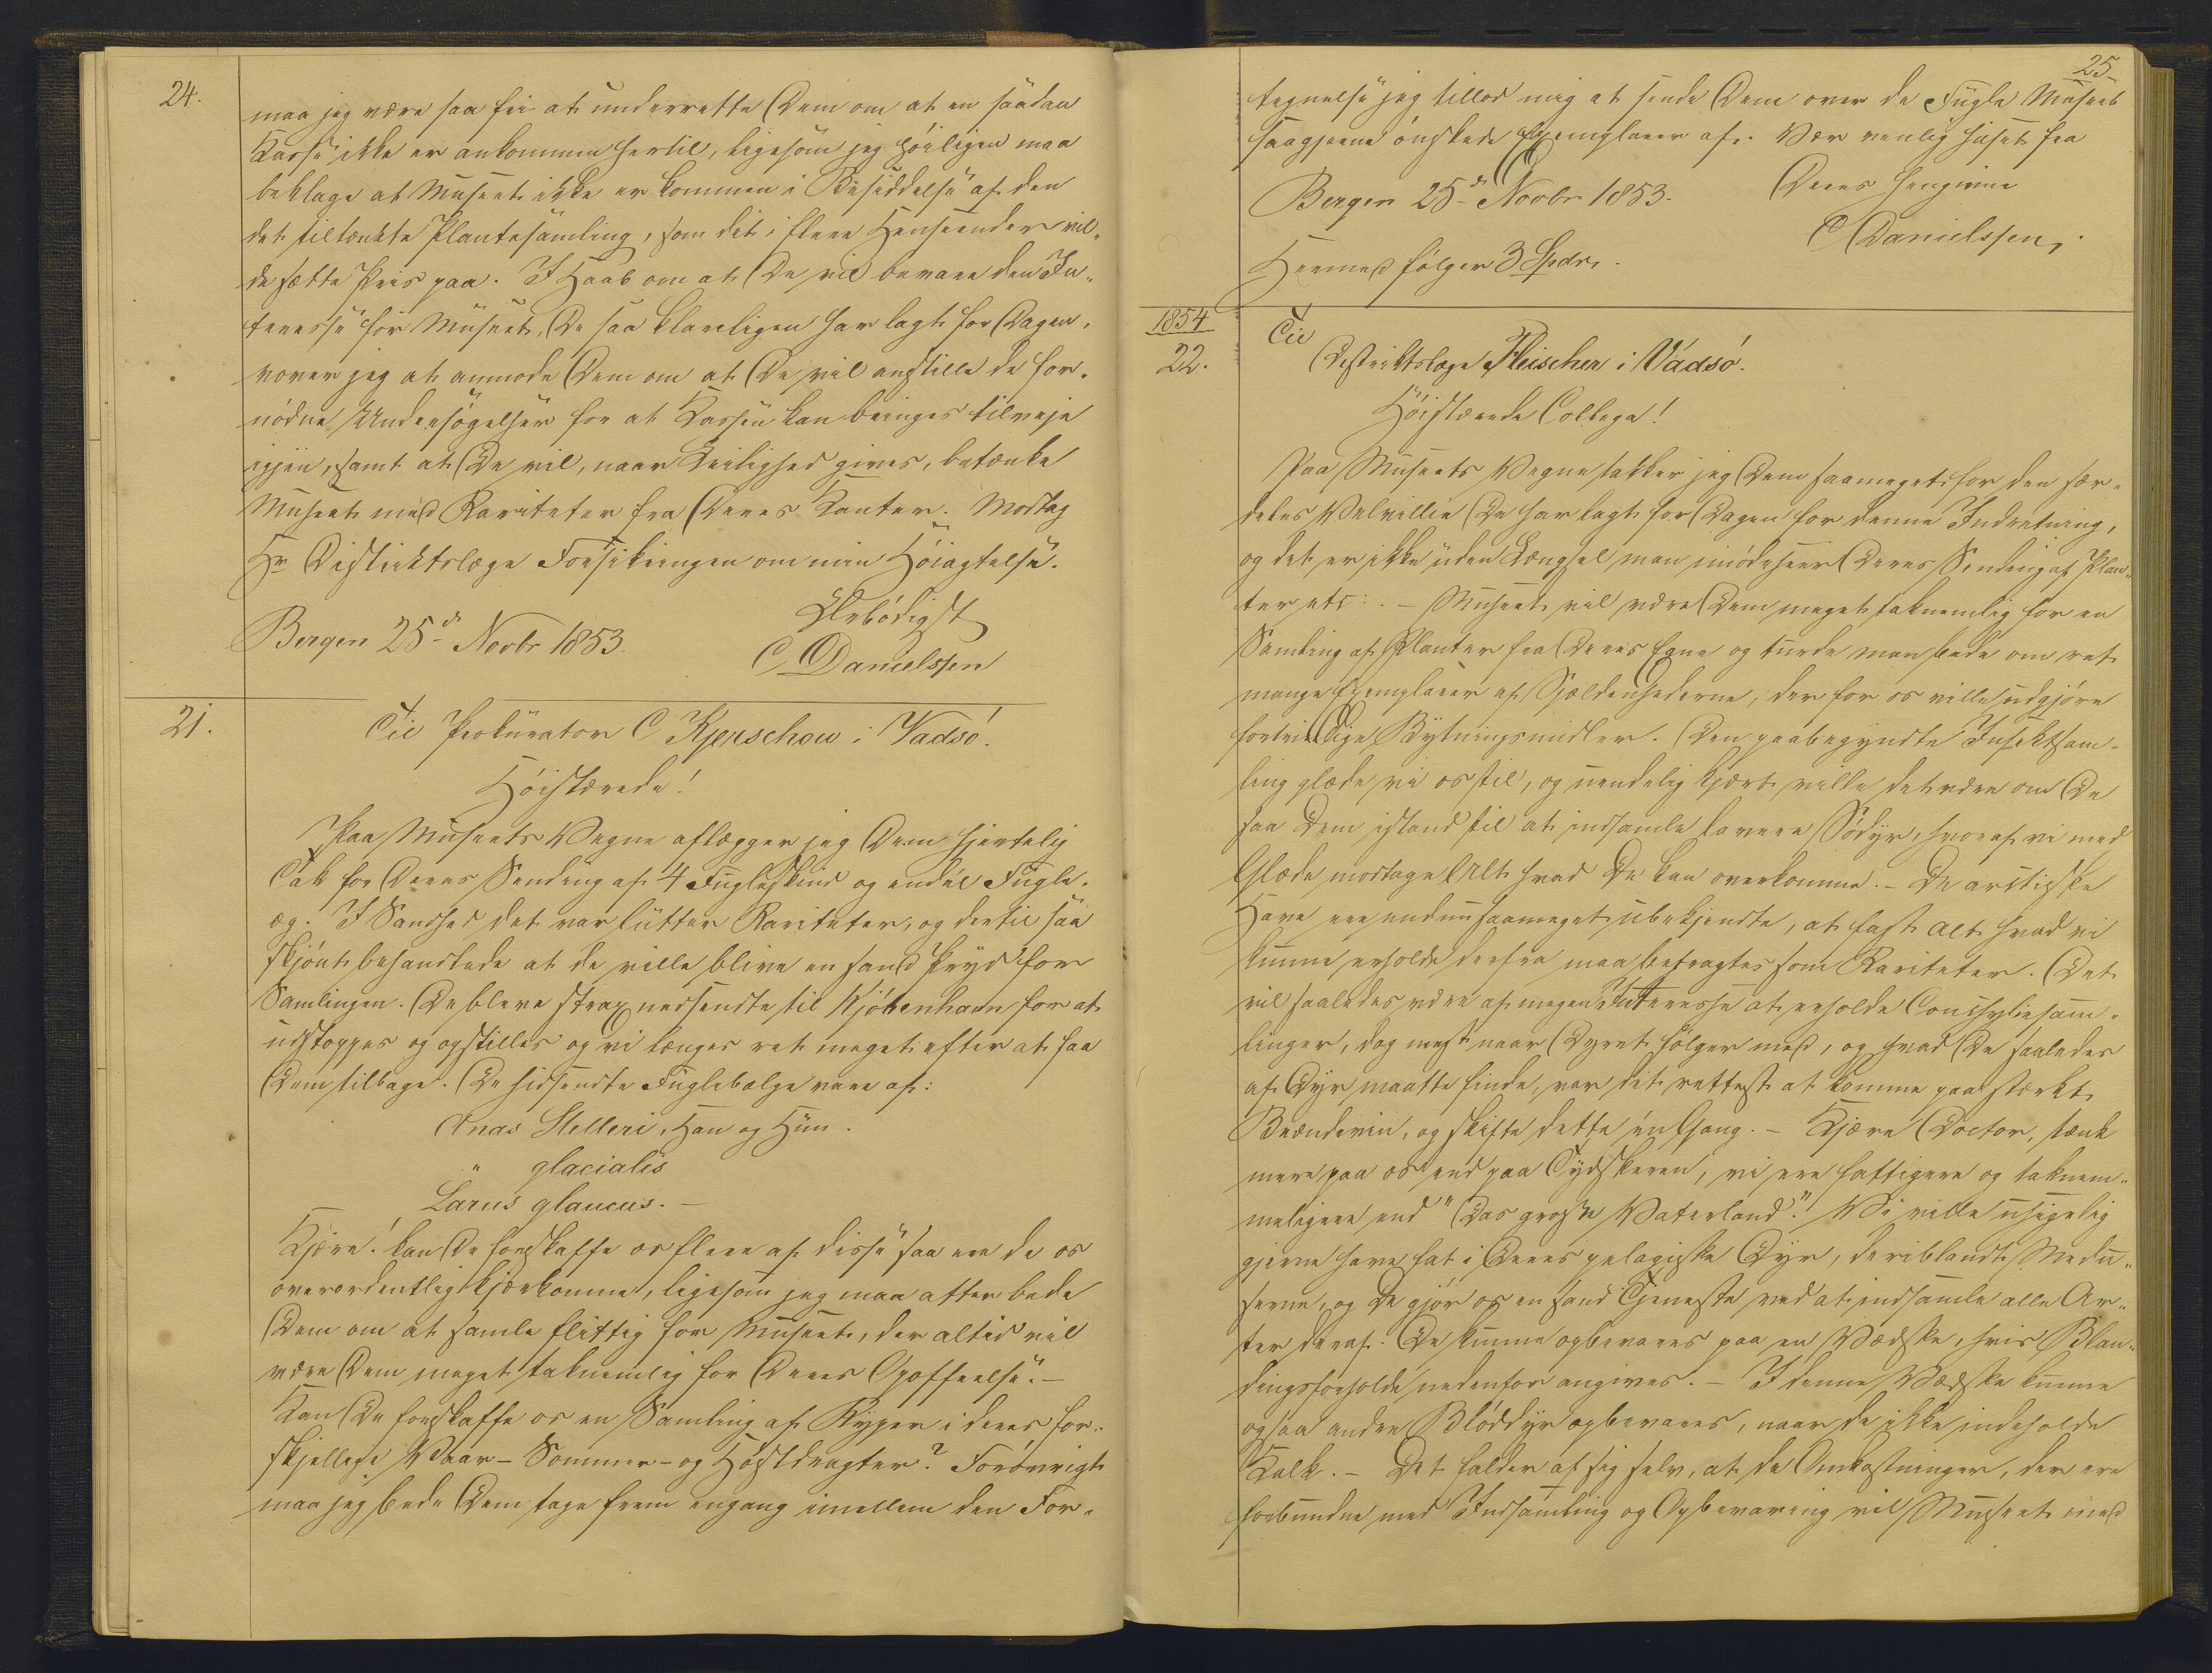 24.
maa jeg være saa fri at underrette Dem om at en saadan
Kasse ikke er ankommen hertil, ligesom jeg høiligen maa
beklage at Museet ikke er kommen i Besiddelse af den
det tiltænkte Plantesamling, som det i flere Henseender vil-
de sætte Pris paa. I Haab om at De vil bevare den In-
teresse for Museet, De saa klarligen har lagt for Dagen,
vover jeg at anmode Dem om at De vil anstille de for-
nødne Undersøgelser for at Kassen kan bringes tilveje
igjen, samt at De vil, naar Leilighed gives, betænke
Museet med Rariteter fra Deres Kanter. Modtag
Hr Distriktslæge Forsikringen om min Høiagtelse.
Ærbødigst
Bergen 25d Novbr 1853.
C Danielssen
21.
Til Prokurator C Kjerschow i Vadsö.
Höistærede!
Paa Museets Vegne aflægger jeg Dem hjertelig
Tak for Deres Sending af 4 Fugleskind og endel Fugle-
æg. I Sandhed det var lutter Rariteter, og dertil saa
skjønt behandlede at de ville blive en sand Pryd for
Samlingen. De bleve strax nedsendte til Kjöbenhavn for at
udstoppes og opstilles og vi længes ret meget efter at faa
Dem tilbage. De hidsendte Fuglebælge vare af:
Anas Stelleri, Han og Hun.
" glacialis
Larus glaucus. –
Kjære! kan De forskaffe os flere af disse saa ere de os
overordentlig kjærkomne, ligesom jeg maa atter bede
Dem om at samle flittig for Museet, der altid vil
være Dem meget taknemlig for Deres Opoffrelse. –
Kan De forskaffe os en Samling af Ryper i deres for-
skjellige Vaar- Sommer- og Høstdragter? Forøvrigt
maa jeg bede Dem tage frem engang imellem den For-
25
tegnelse jeg tillod mig at sende Dem over de Fugle Museet
saagjerne ønskede Exemplarer af. Vær venlig hilset fra
Deres hengivne
Bergen 25d Novbr 1853.
C Danielssen,
Hermed følger 3 Spdr.
1854
22.
Til
Distriktslæge Fleischer i Vadsö.
Höistærede Collega!
Paa Museets Vegne takker jeg Dem saameget for den sær-
deles Velvillie De har lagt for Dagen for denne Indretning,
og det er ikke uden Længsel man imødeseer Deres Sending af Plan-
ter etc: . – Museet vil være Dem meget taknemlig for en
Samling af Planter fra Deres Egne og turde man bede om ret
mange Exemplarer af Sjældenhederne, der for os ville udgjöre
fortrinlige Bytningsmidler. Den paabegyndte Insektsam-
ling glæde vi os til, og uendelig kjært ville det være om De
saa Dem istand til at indsamle lavere Södyr, hvoraf vi med
Glæde modtage Alt hvad De kan overkomme. – De arctiske
Have ere endnu saameget ubekjendte, at fast alt hvad vi
kunne erholde derfra maa betragtes som Rariteter. Det
vil saaledes være af megen Interesse at erholde Conchyliesam-
linger, dog mest naar Dyret følger med, og hvad De saaledes
af Dyr maatte finde, var det rettest at komme paa stærkt
Brændeviin, og skifte dette én Gang. – Kjære Doctor, tænk
mere paa os end paa Tydskeren, vi ere fattigere og taknem-
meligere end "Das grosse Vaterland"! Vi ville usigelig
gjerne have fat i Deres pelagiske Dyr, deriblandt Medu-
serne, og De gjör os en sand Tjeneste ved at indsamle alle Ar-
ter deraf. De kunne opbevares paa en Vædske, hvis Blan-
dingsforholde nedenfor angives. – I denne Vædske kunne
ogsaa andre Bløddyr opbevares, naar de ikke indeholde
Kalk. – Det falder af sig selv, at de Omkostninger, der ere
forbundne med Indsamling og Opbevaring vil Museet med